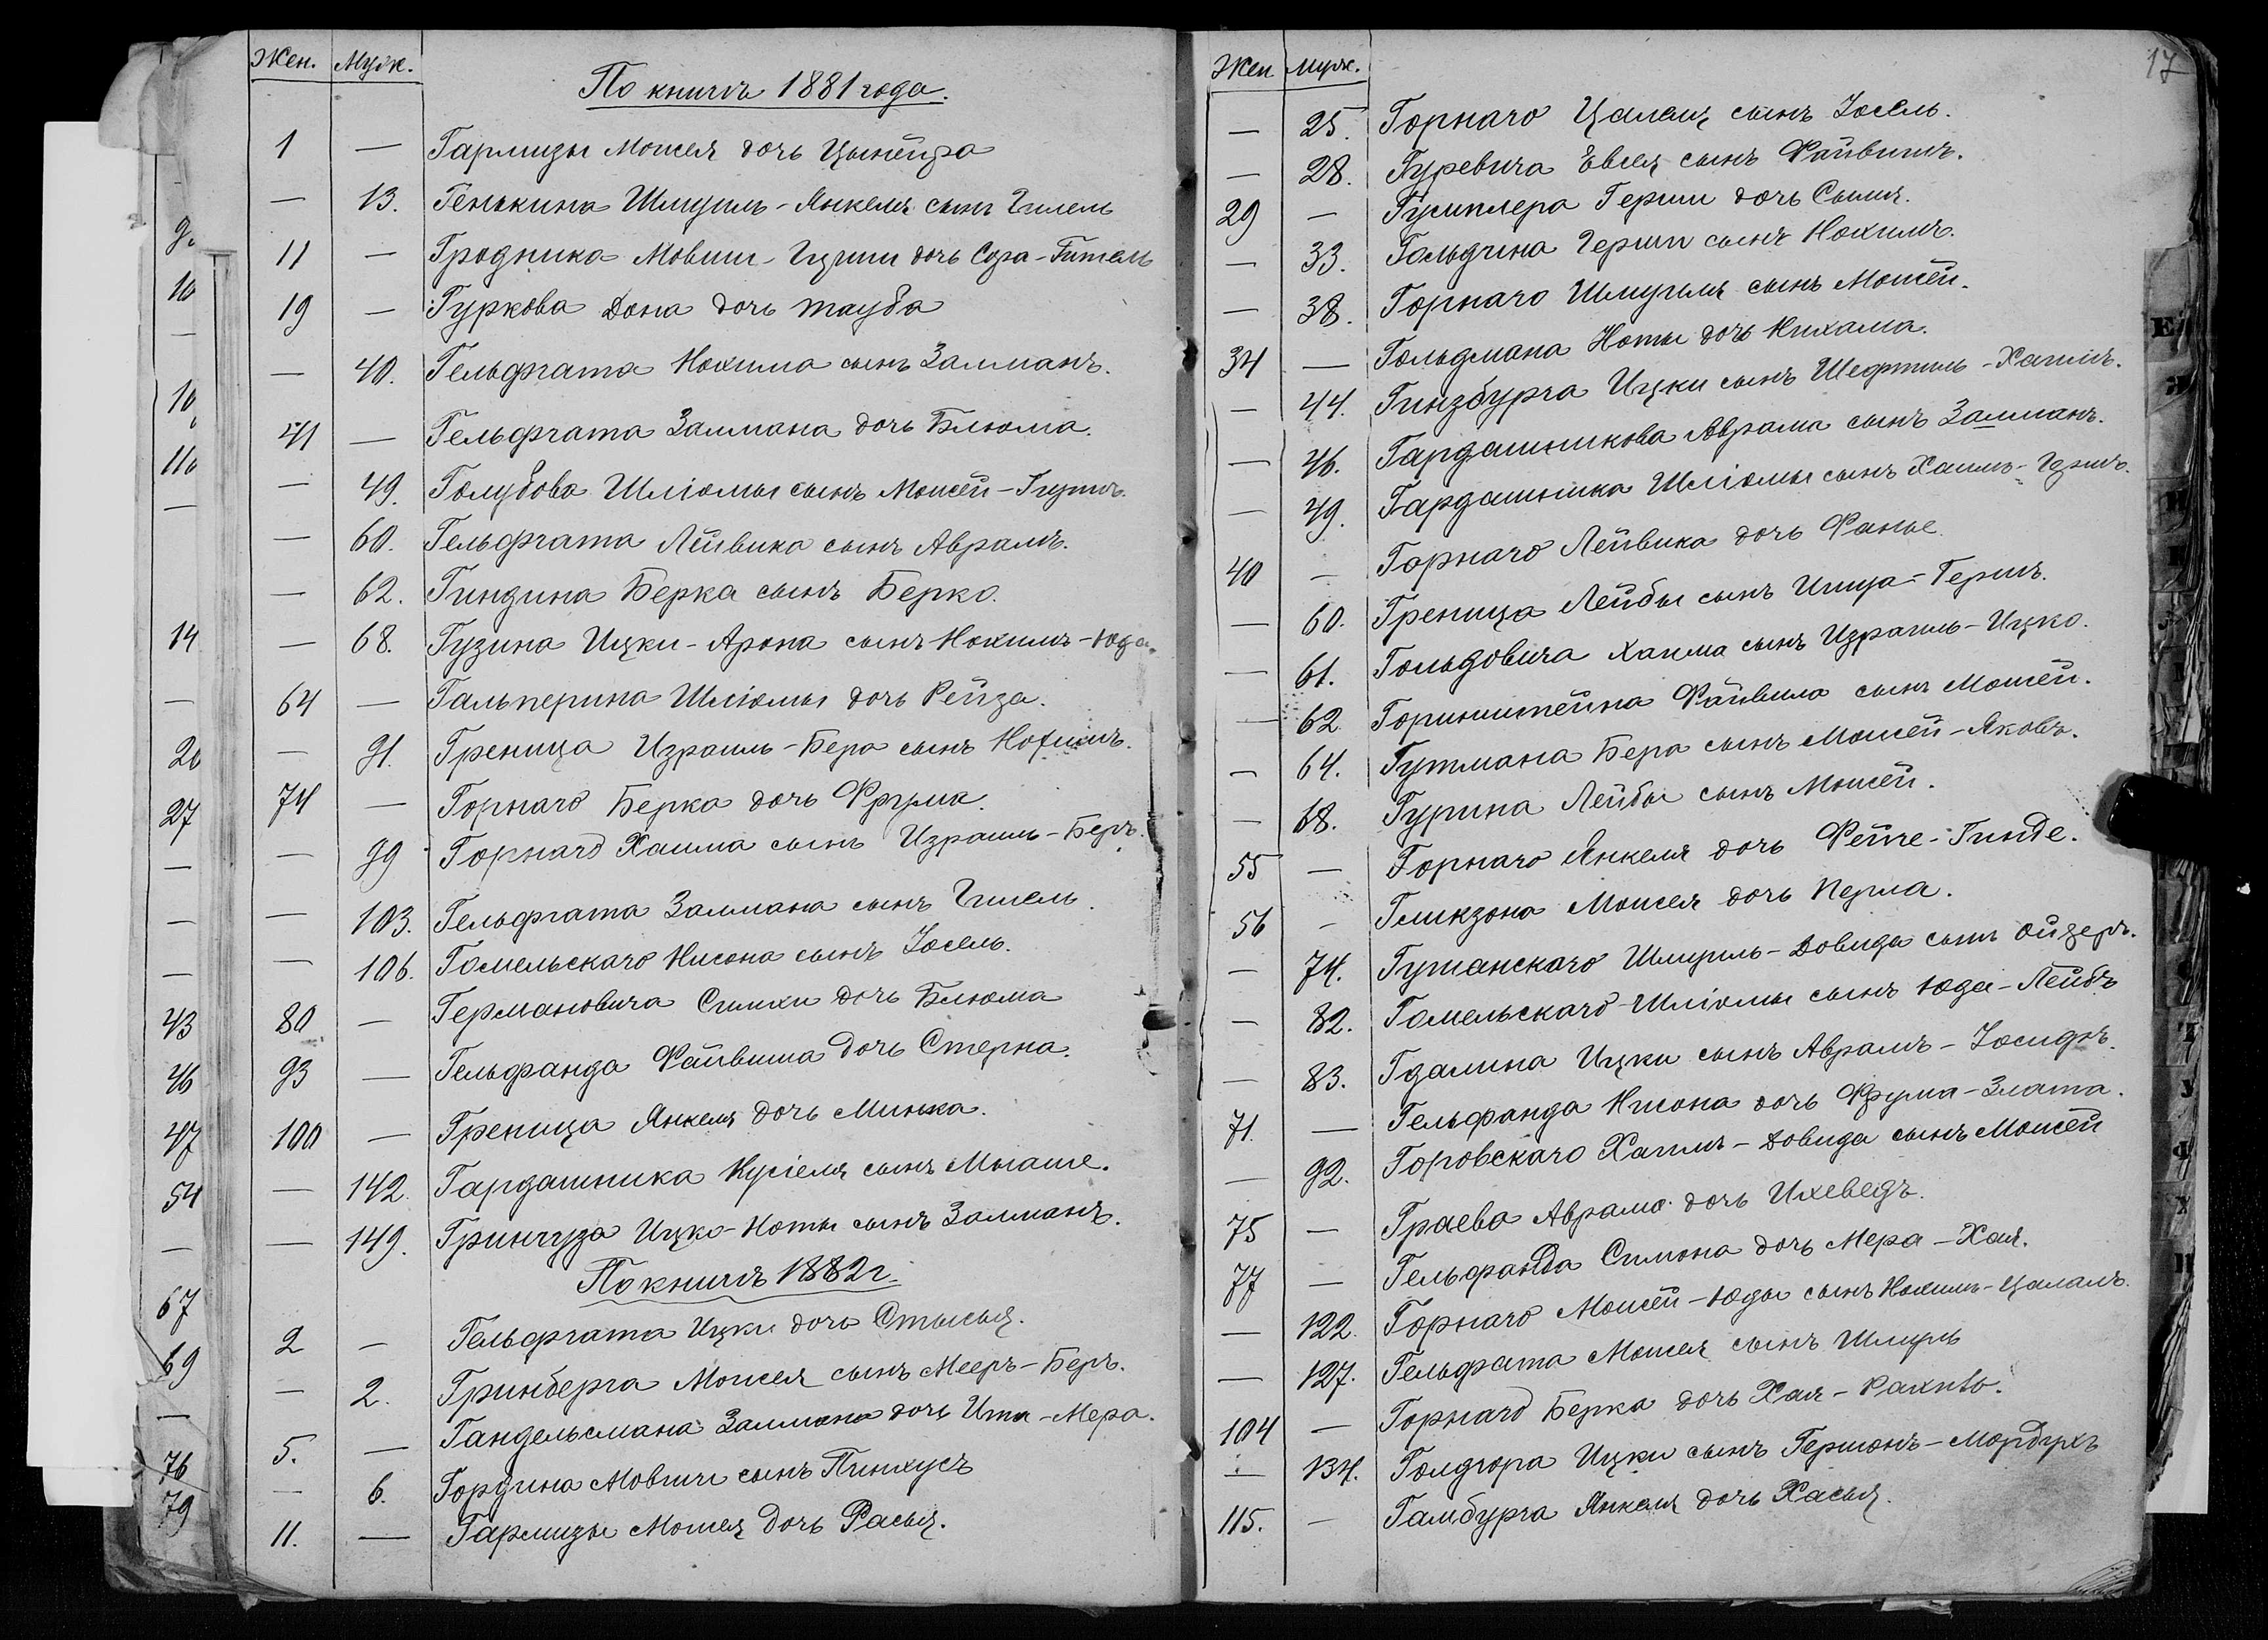 Жен. Муж.
По книгѣ 1881 года.
1 — Гармизы Моисея дочь Цынейра
— 13. Генькина Шмуиль-Янкеля сынъ Гилель
11 — Гродника Мовши-Гирши дочь Сора-Гитель
19 — Гуркова Дона дочь Тауба
— 40. Гельфгата Нохима сынъ Залманъ.
41 — Гельфгата Залмана дочь Блюма.
— 49. Голубова Шліомы сынъ Моисей-
— 60. Гельфгата Лейвика сынъ Аврамъ.
— 62. Гиндина Берка сынъ Берко.
— 68. Гузина Ицки-Арона сынъ Нохимъ-Юда.
64 — Гальперина Шліомы дочь Рейза.
— 91. Греница Израиль-Бера сынъ Нохимъ.
74 — Горнаго Берка дочь Фрума.
— 99 Горнаго Хаима сынъ Израиль-Беръ.
— 103. Гельфгата Залмана сынъ Гилель.
— 106. Гомельскаго Нисона сынъ Іосель.
80 — Германовича Симхи дочь Блюма
93 — Гельфанда Файвиша дочь Стерна.
100 — Греница Янкеля дочь Минька.
— 142. Гардашника Кусіеля сынъ
— 149. Гринчуза Ицко-Ноты сынъ Залманъ.
По книгѣ 1882 г.
2 — Гельфгата Ицки дочь Стысья.
— 2. Гринберга Моисея сынъ Мееръ-Беръ.
5. — Гандельсмана Залмана дочь Ита-Мера.
— 6. Гордина Мовши сынъ Пинхусъ
11. — Гармизы Моисея дочь Расья.
9.
10
—
10
11
—
14
—
20
27
—
—
—
43
46
47
54
—
67
69
—
76
79
17
Жен. Муж.
— 25. Горнаго Цалея сынъ Іосель.
— 28. Гуревича Евсея сынъ Файвишъ.
29 — Герши дочь Сыма.
— 33. Гольдина Герши сынъ Нохимъ.
— 38. Горнаго Шмуиля сынъ Моисей.
34 — Гольдмана Ноты дочь Нихама.
— 44. Гинзбурга Ицки сынъ Шефтиль-Хаимъ.
— 46. Гардашникова Аврама сынъ Залманъ.
— 49. Гардашника Шліомы сынъ Хаимъ-
40 — Горнаго Лейвика дочь Фанье.
— 60. Греница Лейбы сынъ Ицка-Гершъ.
— 61. Гольдовича Хаима сынъ Израиль-Ицко.
— 62 Горинштейна Файвила сынъ Моисей.
— 64. Гутмана Бера сынъ Моисей-Яковъ.
— 68. Гурина Лейбы сынъ Моисей.
55 — Горнаго Янкеля дочь Фейге-Гинде.
56 — Гликзона Моисея дочь Перла.
— 74. Гутанскаго Шмуиль-Довида сынъ Ойзеръ.
— 82. Гомельскаго Шліомы сынъ Юда-Лейбъ
— 83. Гдалина Ицки сынъ Аврамъ-Іосифъ.
71. — Гельфанда Нисона дочь Фрума-Злата.
— 92. Горовскаго Хаимъ-Довида сынъ Моисей
75 — Граева Аврама дочь Ихеведъ.
77 — Гельфанда Симона дочь Мера-Хая.
— 122. Горнаго Моисей-Юды сынъ Нохимъ-Цалалъ.
— 127. Гельфата Моисея сынъ Шмуиль
104 — Горнаго Берка дочь Хая-
— 134. Голдгора Ицки сынъ Гершонъ-Мордухъ
115. — Гамбурга Янкеля дочь Хасья.